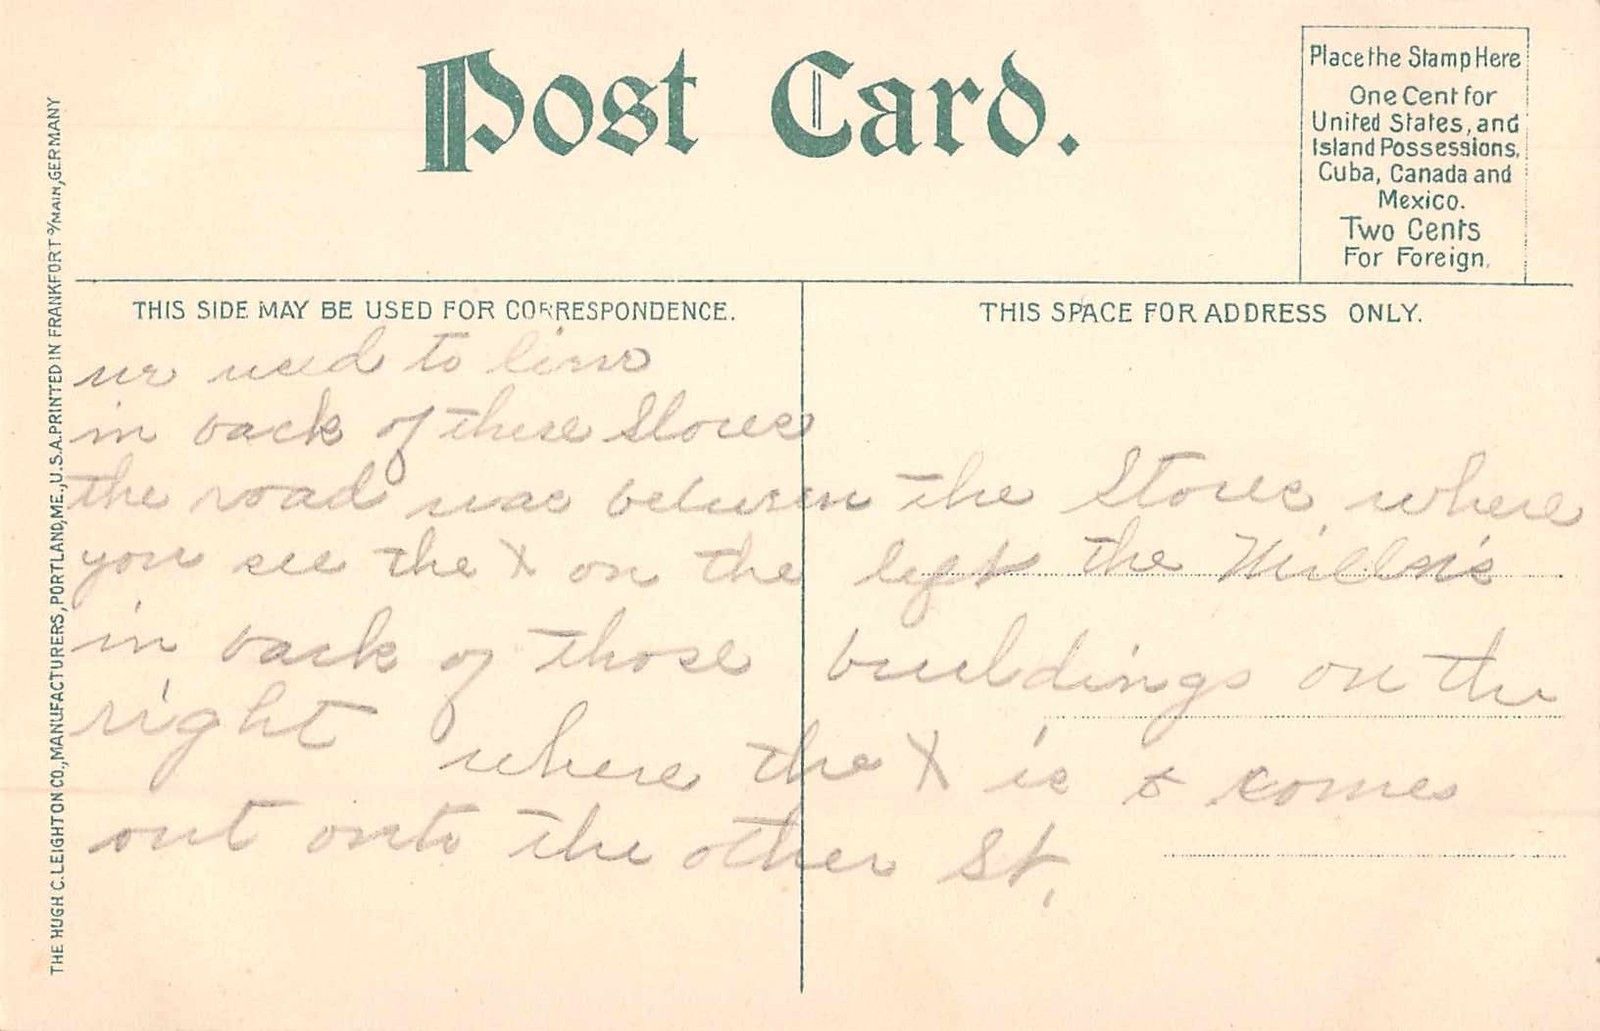 Post Card.
Place the Stamp Here
One Cent for
United States, and
Island Possessions,
Cuba, Canada and
Mexico.
Two Cents
For Foreign.
THE HUGH C. LEIGHTON CO., MANUFACTURERS, PORTLAND, ME., U.S.A. PRINTED IN FRANKFORT o/MAIN, GERMANY
THIS SIDE MAY BE USED FOR CORRESPONDENCE.
THIS SPACE FOR ADDRESS ONLY.
we used to live
in back of these Stores
the road was between the Stores where
you see the X on the left the
in back of those buildings on the
right where the X is & comes
out onto the other St.